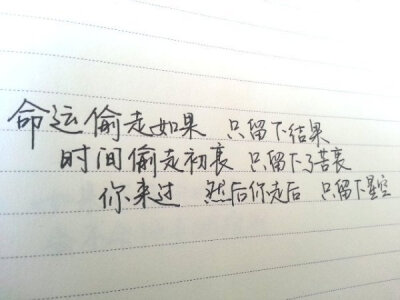 命运偷走如果 只留下结果
时间偷走初衷 只留下了苦衷
你来过 然后你走后 只留下星空